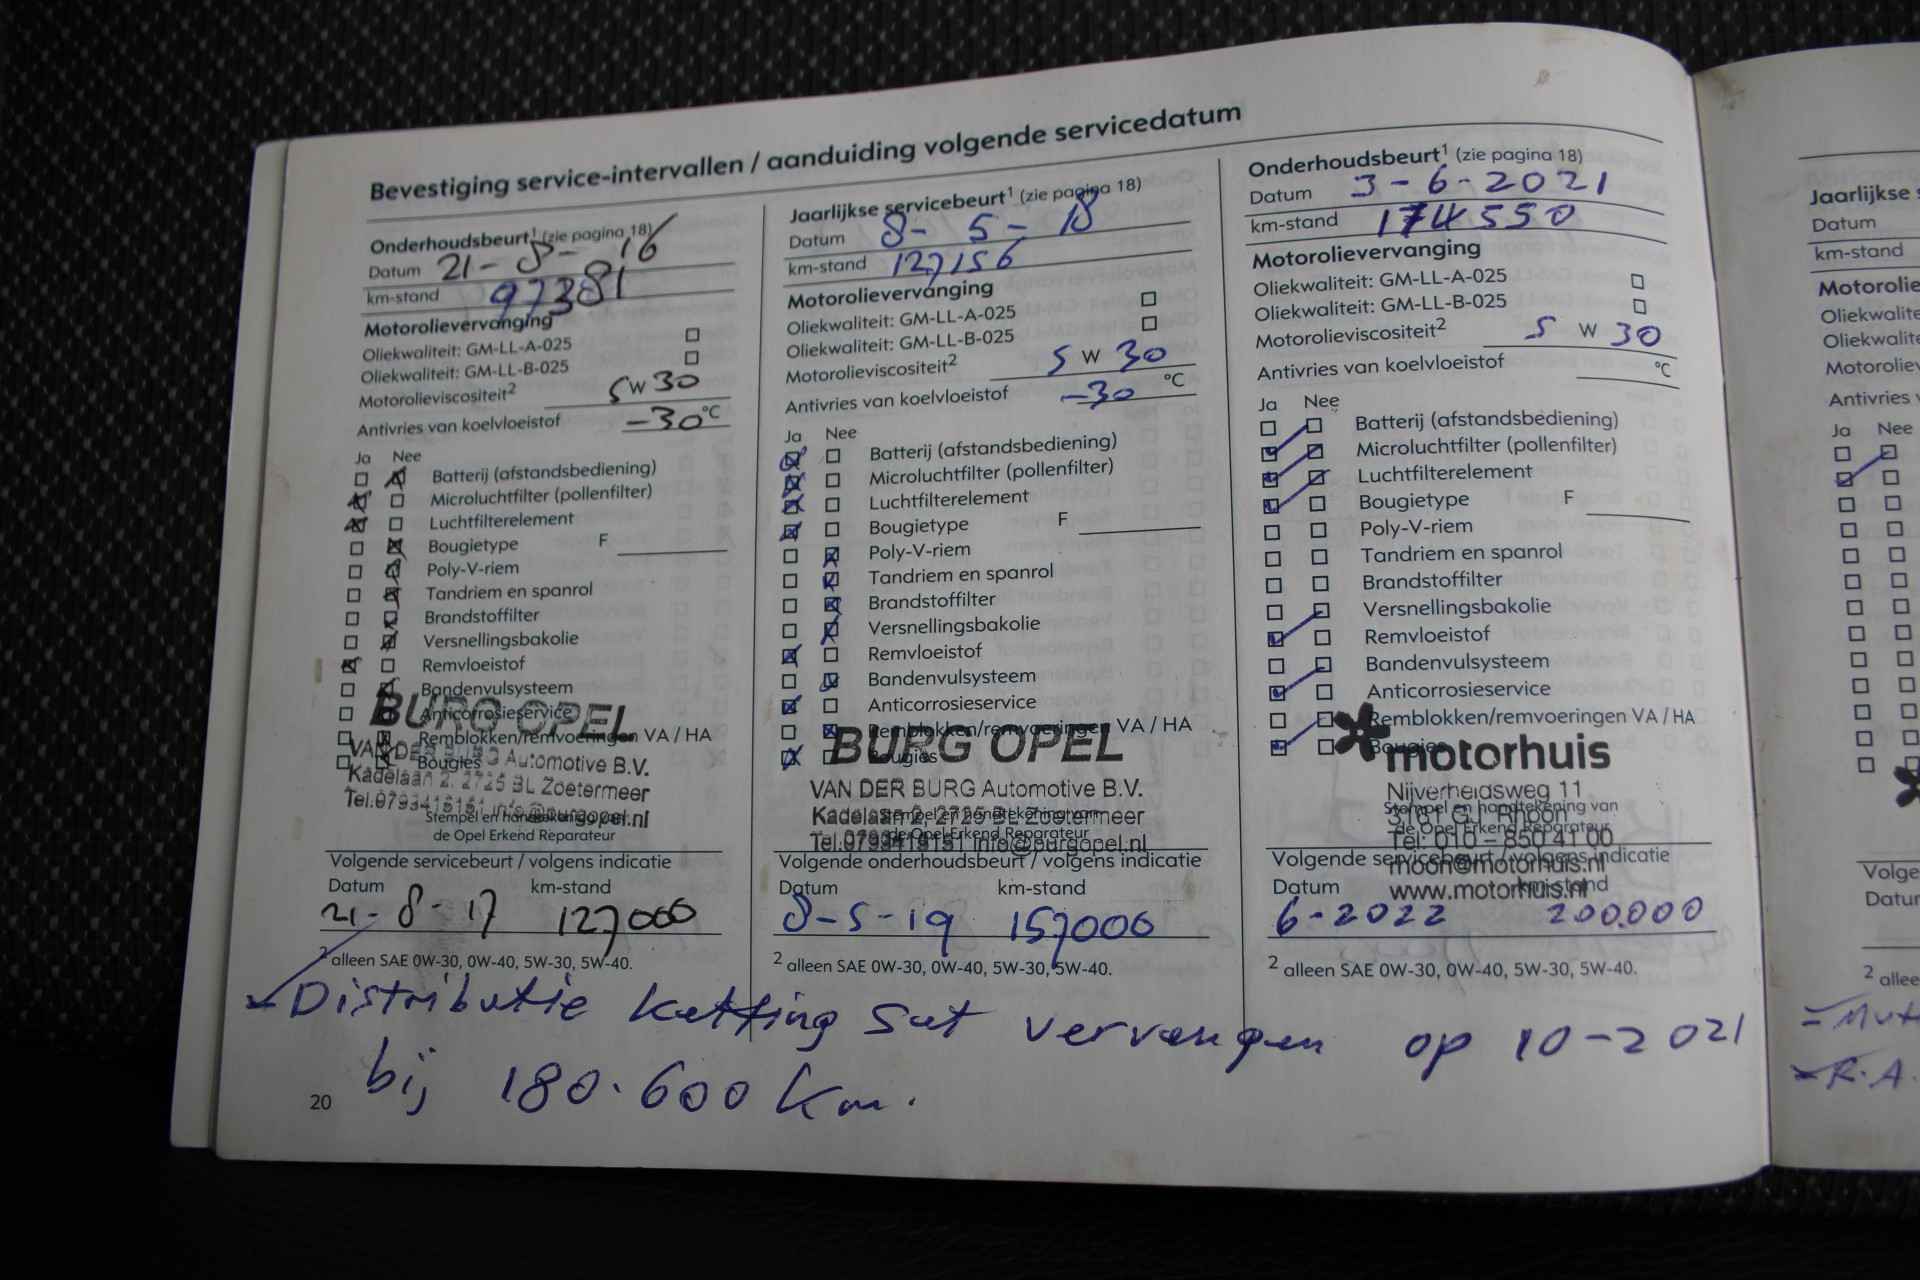 Bevestiging service-intervallen / aanduiding volgende servicedatum
Onderhoudsbeurt¹ (zie pagina 18)
Datum 21-8-16
km-stand 97381
Motorolievervanging
Oliekwaliteit: GM-LL-A-025
Oliekwaliteit: GM-LL-B-025
Motorolieviscositeit² 5 W 30
Antivries van koelvloeistof -30 °C
Ja Nee
Batterij (afstandsbediening)
Microluchtfilter (pollenfilter)
Luchtfilterelement
Bougietype F
Poly-V-riem
Tandriem en spanrol
Brandstoffilter
Versnellingsbakolie
Remvloeistof
Bandenvulsysteem
Anticorrosieservice
Remblokken/remvoeringen VA / HA
Bougies
BURG OPEL
VAN DER BURG Automotive B.V.
Kadelaan 2, 2725 BL Zoetermeer
Tel.0793416151 info@burgopel.nl
Stempel en handtekening van
de Opel Erkend Reparateur
Volgende servicebeurt / volgens indicatie
Datum km-stand
21-8-17 127000
² alleen SAE 0W-30, 0W-40, 5W-30, 5W-40.
Jaarlijkse servicebeurt¹ (zie pagina 18)
Datum 8-5-18
km-stand 127156
Motorolievervanging
Oliekwaliteit: GM-LL-A-025
Oliekwaliteit: GM-LL-B-025
Motorolieviscositeit² 5 W 30
Antivries van koelvloeistof -30 °C
Ja Nee
Batterij (afstandsbediening)
Microluchtfilter (pollenfilter)
Luchtfilterelement
Bougietype F
Poly-V-riem
Tandriem en spanrol
Brandstoffilter
Versnellingsbakolie
Remvloeistof
Bandenvulsysteem
Anticorrosieservice
Remblokken/remvoeringen VA / HA
Bougies
BURG OPEL
VAN DER BURG Automotive B.V.
Kadelaan 2, 2725 BL Zoetermeer
Stempel en handtekening van
de Opel Erkend Reparateur
Tel.0793416151 info@burgopel.nl
Volgende onderhoudsbeurt / volgens indicatie
Datum km-stand
8-5-19 157000
² alleen SAE 0W-30, 0W-40, 5W-30, 5W-40.
Onderhoudsbeurt¹ (zie pagina 18)
Datum 3-6-2021
km-stand 174550
Motorolievervanging
Oliekwaliteit: GM-LL-A-025
Oliekwaliteit: GM-LL-B-025
Motorolieviscositeit² 5 W 30
Antivries van koelvloeistof °C
Ja Nee
Batterij (afstandsbediening)
Microluchtfilter (pollenfilter)
Luchtfilterelement
Bougietype F
Poly-V-riem
Tandriem en spanrol
Brandstoffilter
Versnellingsbakolie
Remvloeistof
Bandenvulsysteem
Anticorrosieservice
Remblokken/remvoeringen VA / HA
Bougies
motorhuis
Nijverheidsweg 11
Stempel en handtekening van
3161 GJ Rhoon
de Opel Erkend Reparateur
Tel: 010 - 850 41 00
Volgende servicebeurt / volgens indicatie
rhoon@motorhuis.nl
Datum km-stand
www.motorhuis.nl
6-2022 200.000
² alleen SAE 0W-30, 0W-40, 5W-30, 5W-40.
Distributie ketting set vervangen op 10-2021
bij 180.600 km.
20
Jaarlijkse
Datum
km-stand
Motorolie
Oliekwalite
Oliekwalite
Motoroliev
Antivries v
Ja Nee
Volge
Datum
² alleen
R.A.